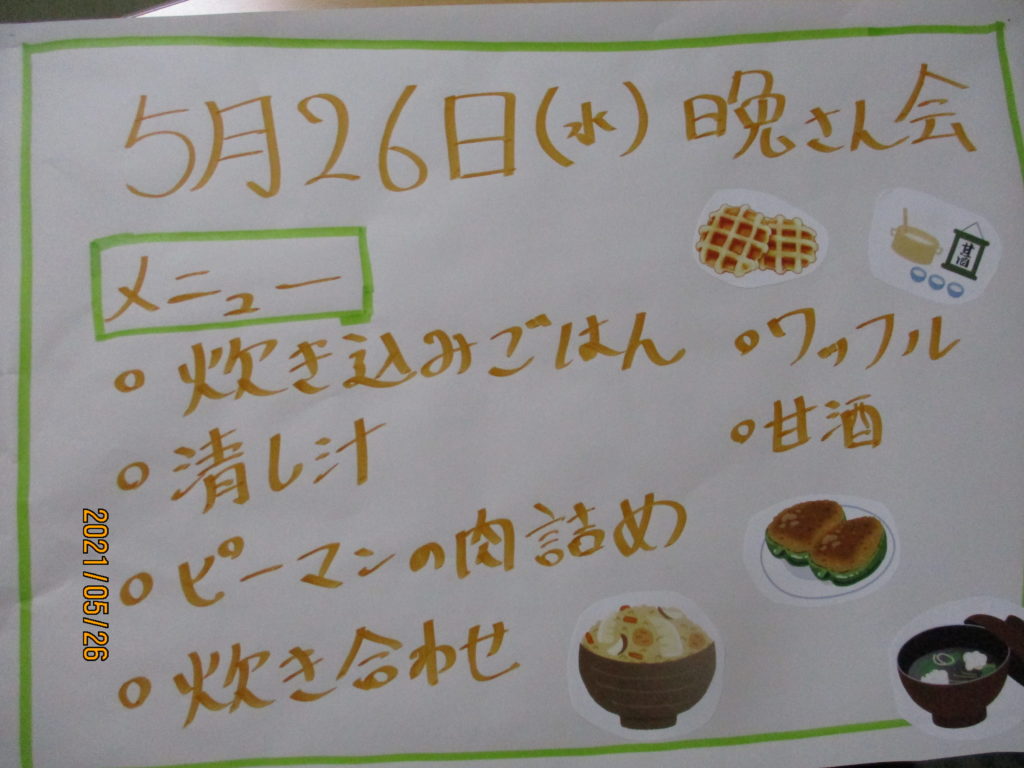 5月26日(水) 晩さん会
メニュー
甘酒
○ 炊き込みごはん
○ 清し汁
○ ピーマンの肉詰め
○ 炊き合わせ
○ ワッフル
○ 甘酒
2021/05/26